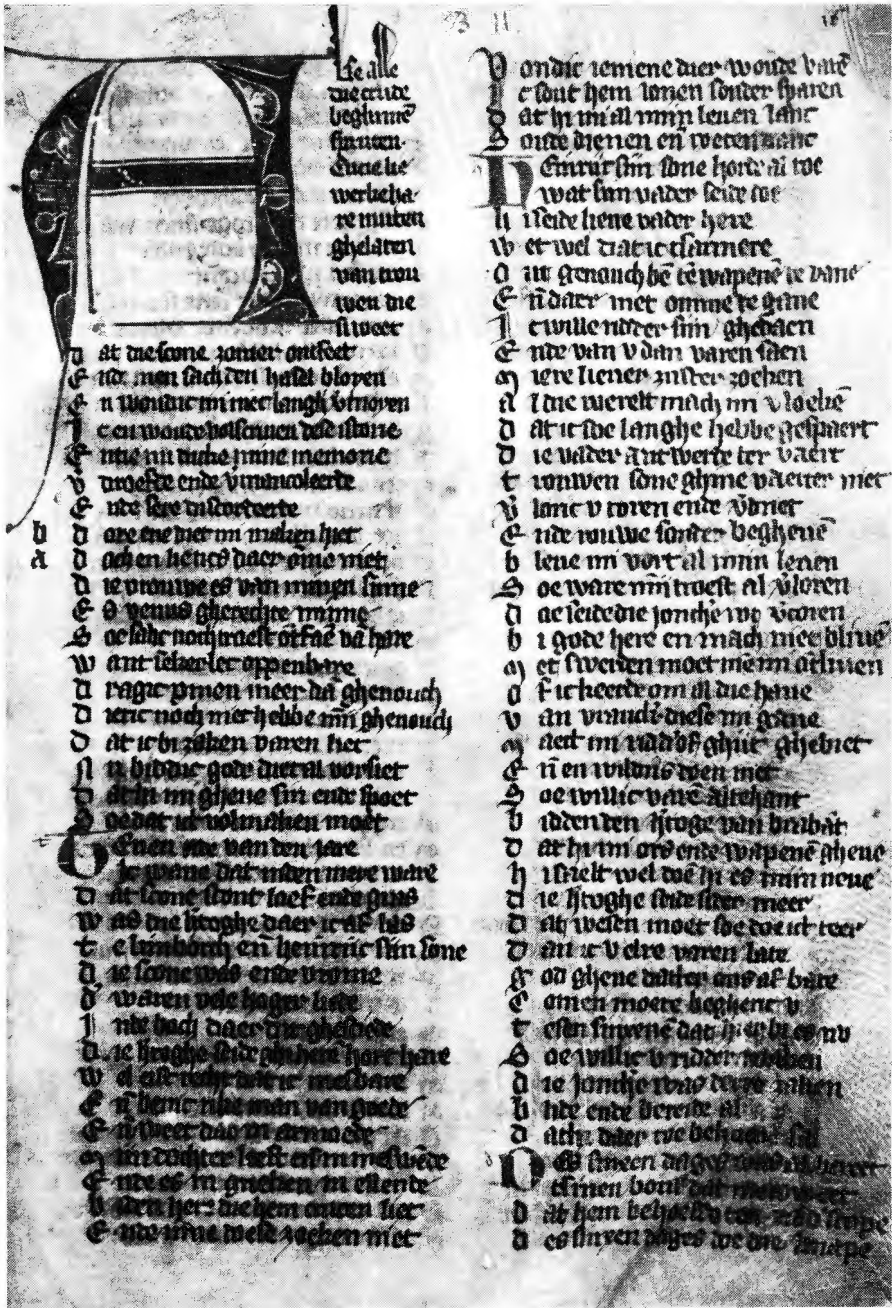 B II
18
Lse alle
die crude
beghinnē
spruten
Ende die
werde ha
re muten
ghelaten
van trou
wen die
si weet
D at die scone zomer ontfeet
E nde men sach den hasel bloyen
E n woudic mi niet langh vmoyen
I c en woude volscriuen dese istorie
E ntie mi dicke mine memorie
V droefde ende vmancoleerde
E nde sere discorteerde
b D ore ene diet mi maken hiet
a D och en lietics daer ōme niet
D ie vrouwe es van minen sinne
E s venus gherechte minne
S oe salic noch troest ontfaē vā hare
W ant sekerlec oppenbare
D ragic pinen meer dā ghenouch
D ieric noch niet hebbe mijn ghenouch
D at ic bi zaken varen liet
N u biddic gode diet al vorsiet
D at hi mi gheue sin ende spoet
S oe dat ict volmaken moet
T Enen ende van den iare
Ic wane dat inden mere ware
D at scone stont loef ende gras
W as die hertoghe daer ic af las
T e limborch eñ heinric sijn sone
D ie scone was ende vrome
D aer waren vele hoger liede
I nde hach daer dit ghesciede
D ie hertoghe seide ghi here hort hare
W el eist recht dat ic mesbare
E ñ bemic rike man van goede
E ñ weet dat in armoede
M ijn dochter leeft eñ in meswēde
E nde es in grieken in ellende
B iden here die hem crucen liet
E nde inne wese zoeken niet
V ondic iemene dier woude varē
I c sout hem lonen sonder sparen
D at hi mi al mijn leuen lanc
S oude dienen eñ weten danc
H Einric sijn sone horde al toe
wat sijn vader seide doe
H i seide lieue vader here
W et wel dat ic tsarmere
O ut genouch bē te wapenē te vane
E ñ daer met omme te gane
I c wille ridder sijn ghedaen
E nde van v dan varen saen
M iere lieuer zuster zoeken
A l die werelt mach mi vloekē
D at ic soe langhe hebbe gespaert
D ie vader antwerde ter vaert
T rouwen sone ghine vaerter niet
V lanc v toren ende v̄driet
E nde rouwe sonder begheuē
B leue mi vort al mijn leuen
S oe ware mijn troest al v̄loren
D ae seide die jonchere v̄coren
B i gode here en mach niet bliuē
M et swerden moet me mi ofliuen
O f ic keerde om al die haue
V an vrancrike diese mi gaue
M aect mi riddr of ghijt ghebiet
E ñ en wildijs doen niet
S oe willic varē altehant
B idden den h̓toge van brabāt
D at hi mi ors ende wapenē gheue
H i sielt wel doē hi es mijn neue
D ie h̓toghe seide seer meer
D at wesen moet soe doe ict eer
D an ic v elre varen late
G od gheue datter ons af bate
C omen moete beghent v
T esen sinxenē dat hier bi es nv
S oe willic v ridder maken
D ie jonche was derre zaken
B lide ende bereide al
D athi daer toe behoeuē sal
D Es sineen dages was al bereet
tsinen bouf dat men weet
D at hem behoefde
D es sinxen dages doe die